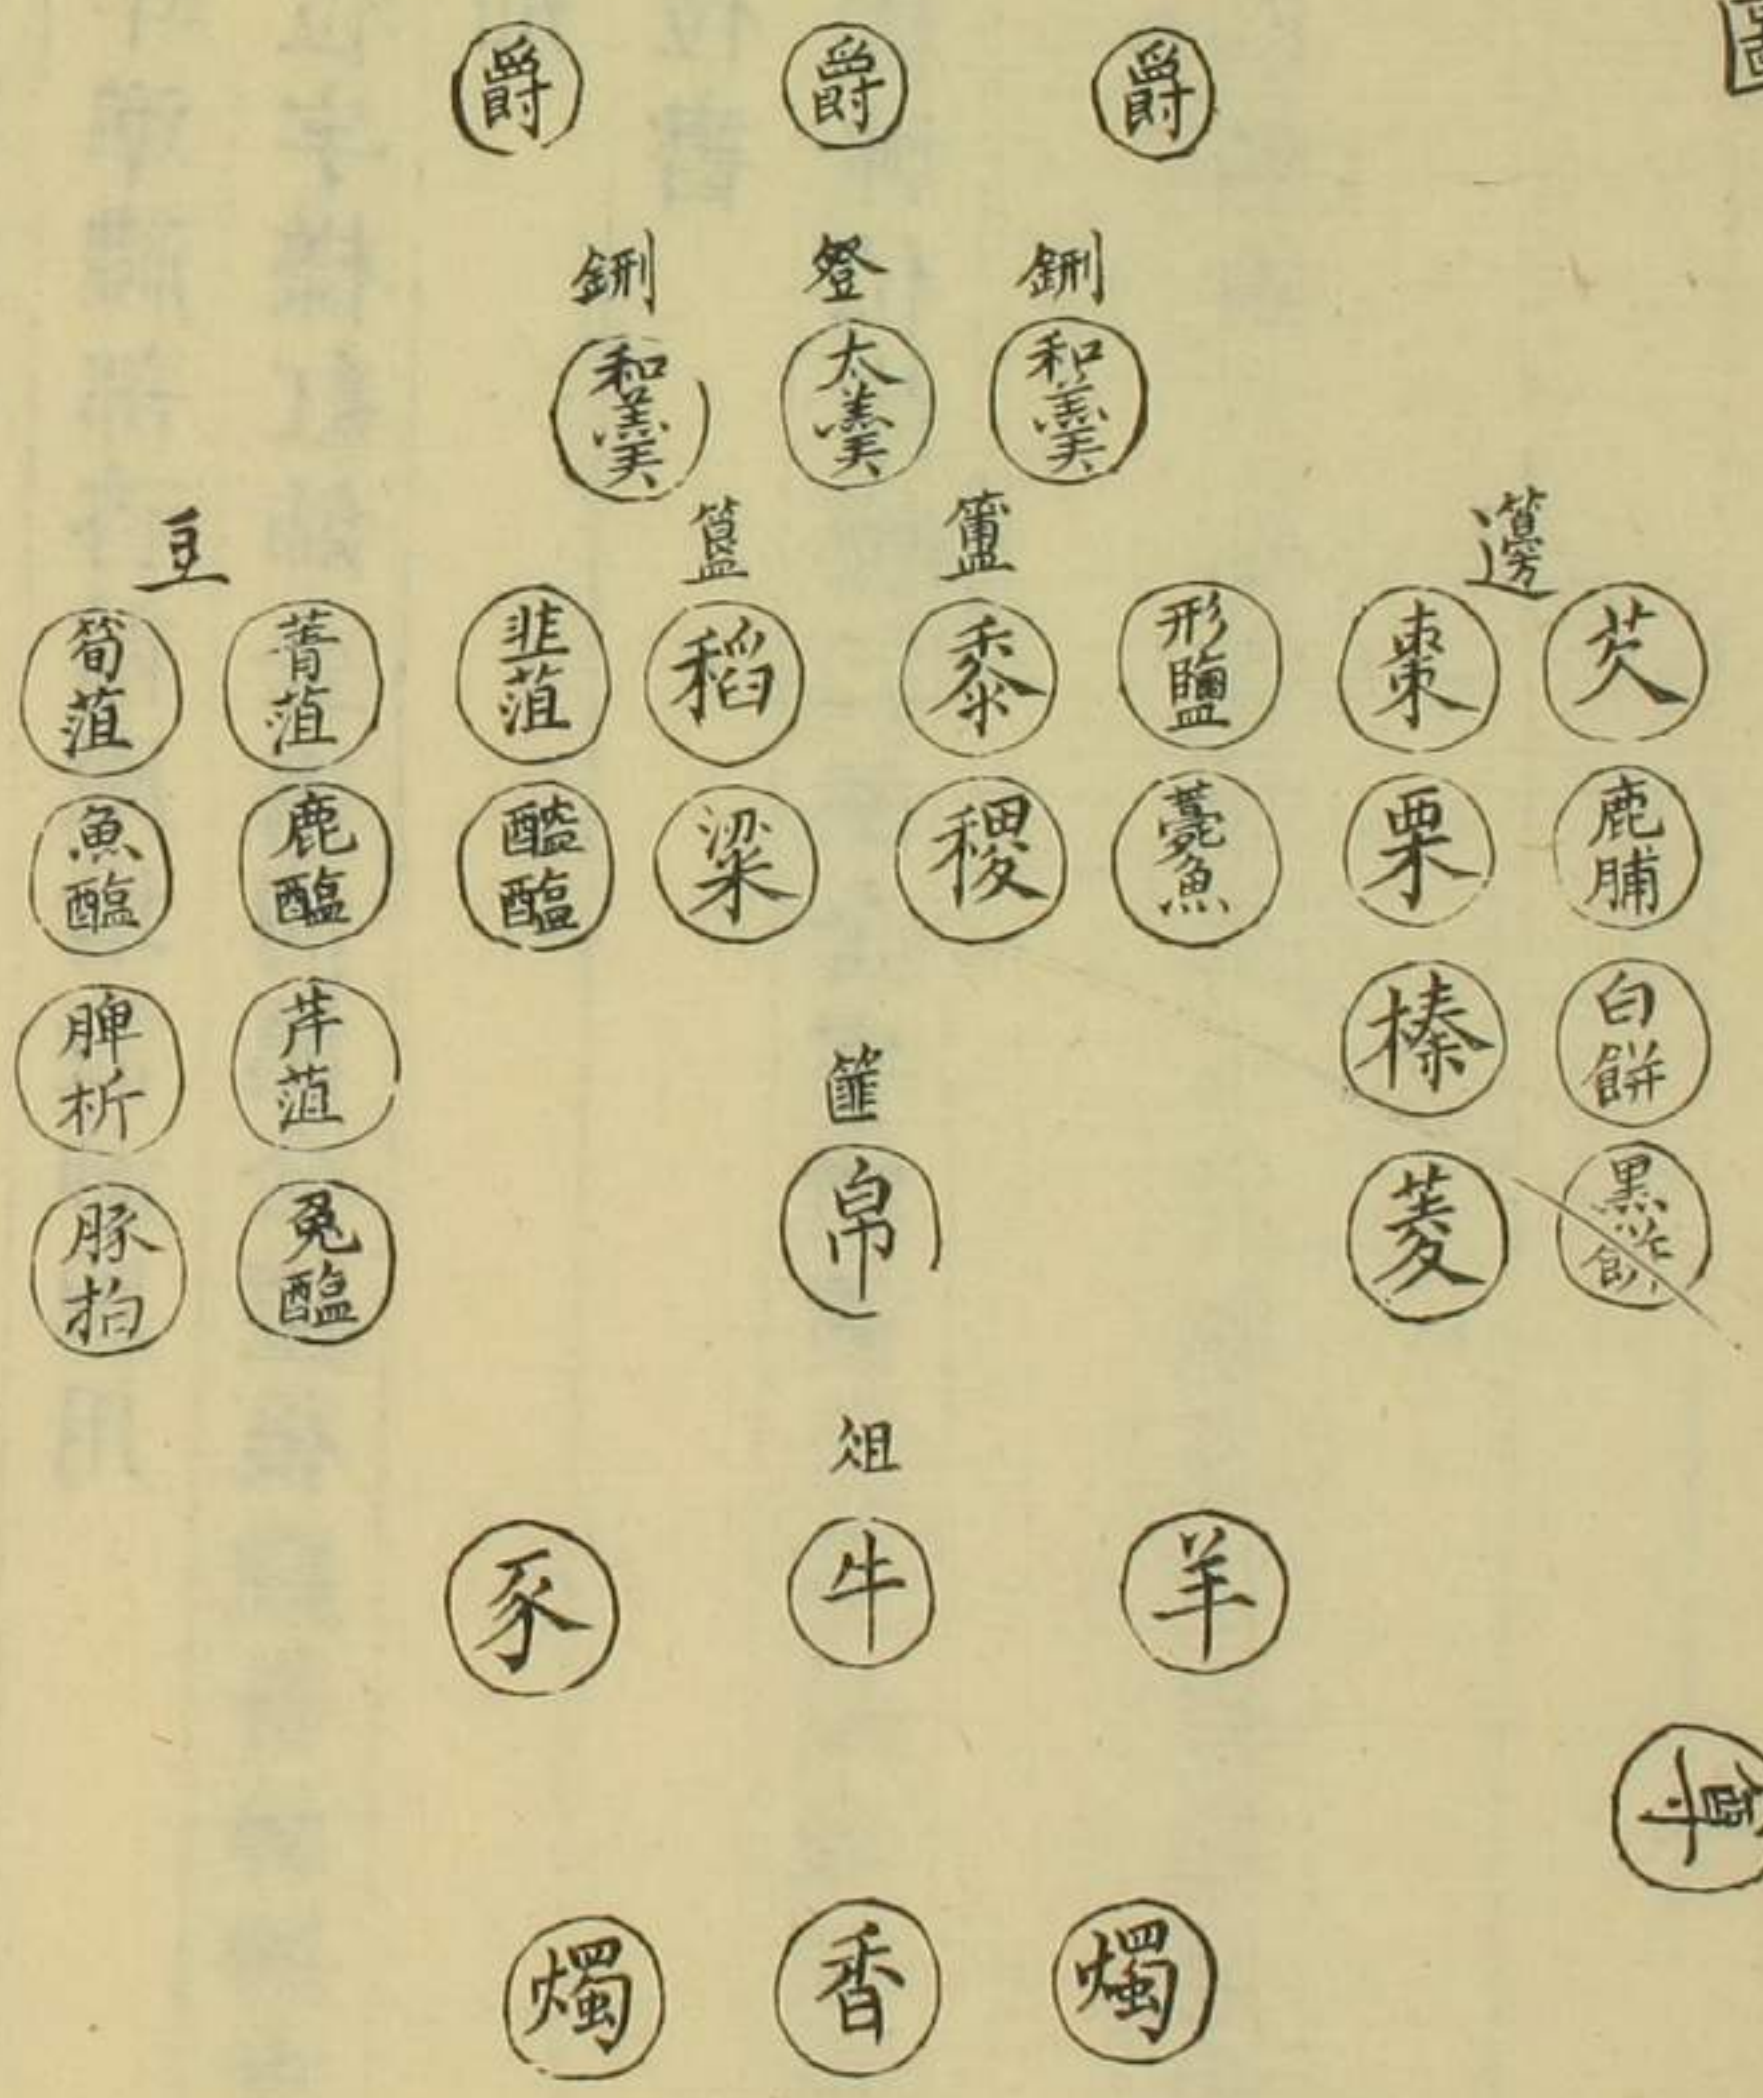 爵 爵 爵
鉶 登 鉶
和羹 太羹 和羹
豆 簋 簠 籩
筍菹 菁菹 韭菹 稻 黍 形鹽 棗 芡
魚醢 鹿醢 醓醢 粱 稷 薧魚 栗 鹿脯
脾析 芹菹 榛 白餅
篚
豚拍 兔醢 帛 菱 黑餅
俎
豕 牛 羊
燭 香 燭